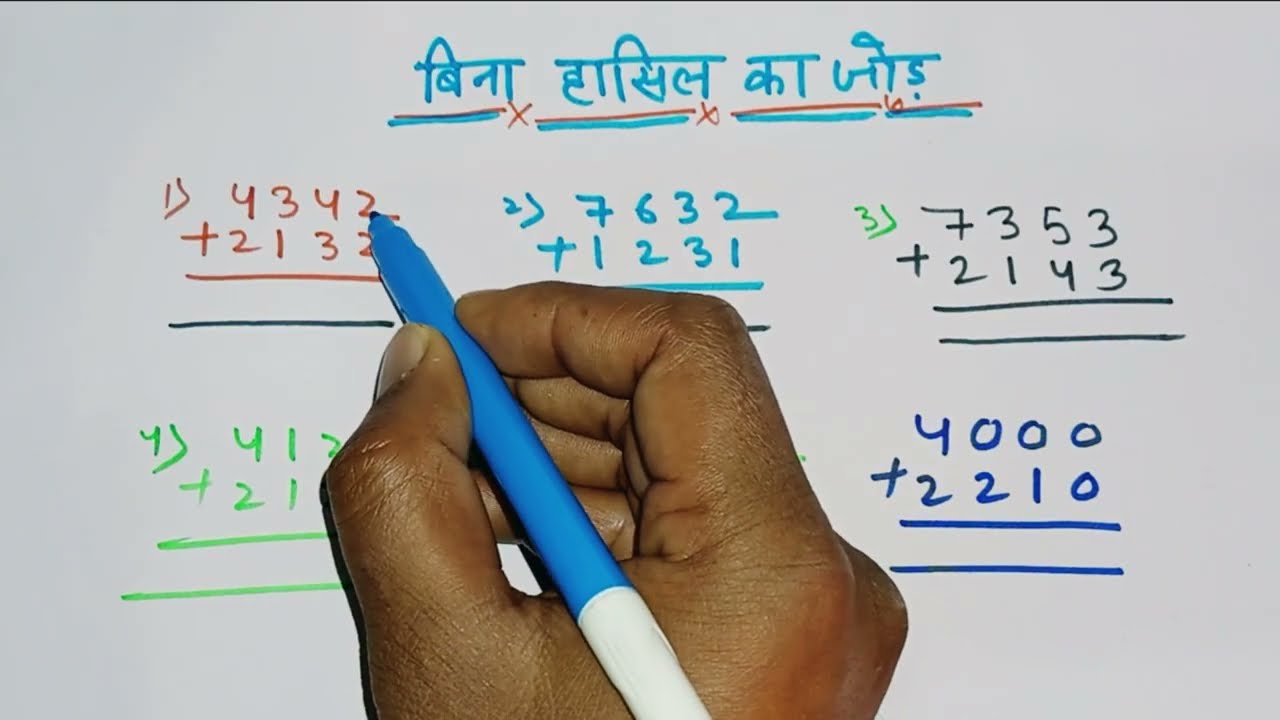 बिना हासिल का जोड़
1) 4342
+ 213
2) 7632
+ 1231
3) 7353
+ 2143
4) 41
+ 21
4000
+ 2210